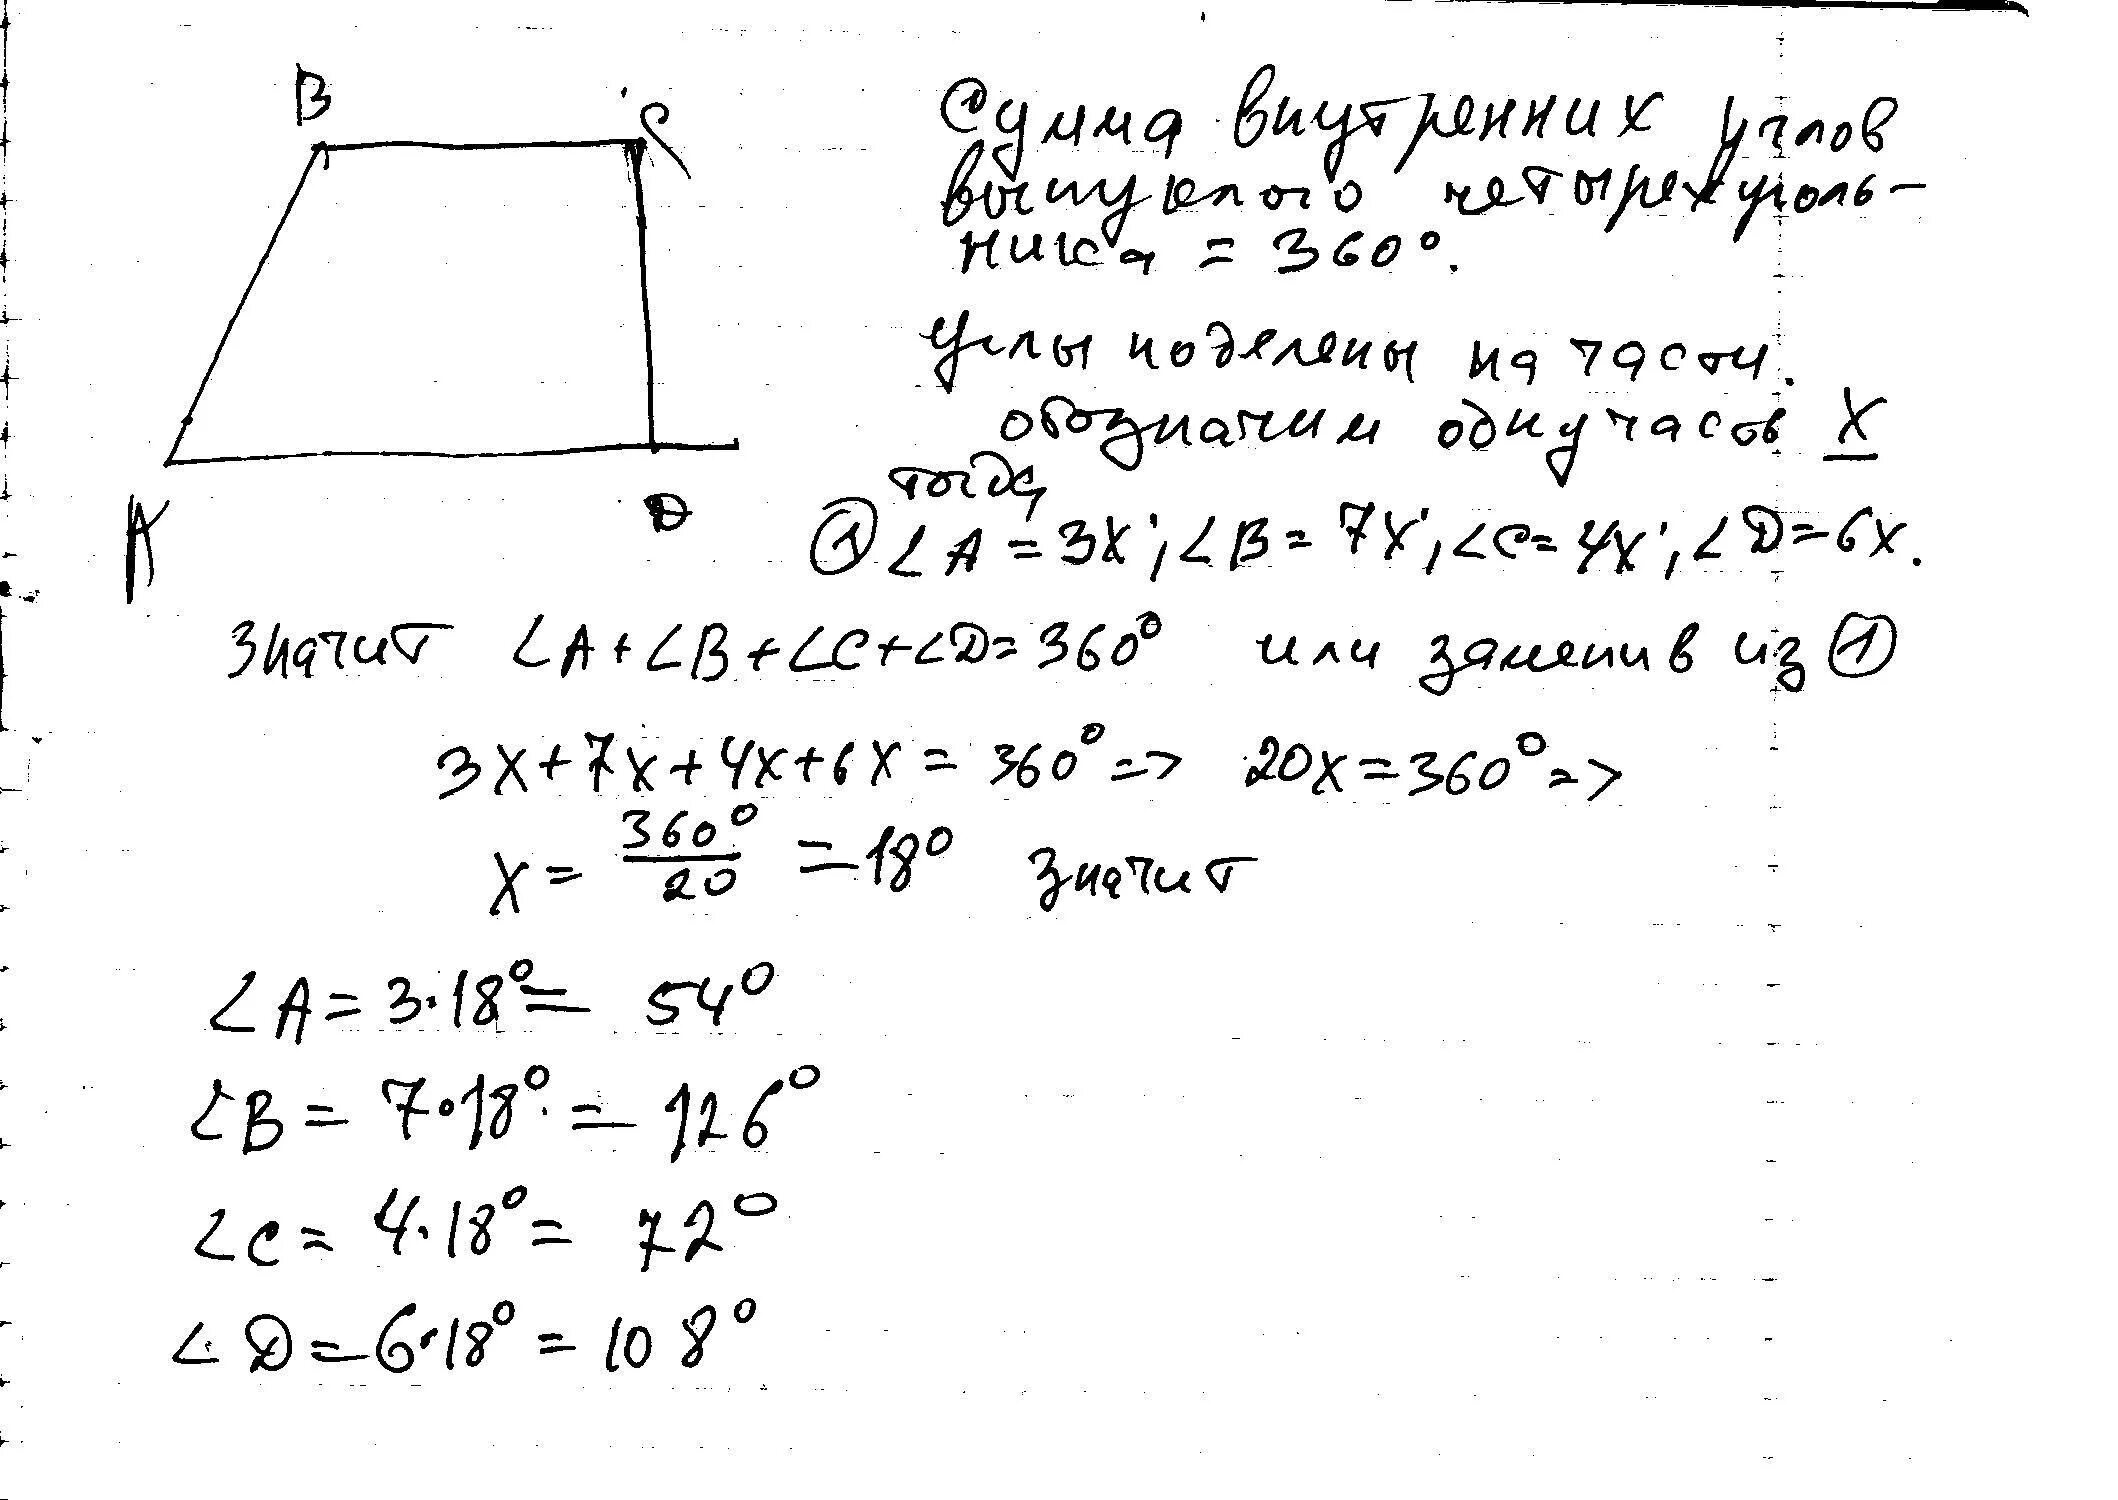 B
C
A
D
Сумма внутренних углов
выпуклого четырехуголь-
ника = 360°.
Углы поделены на части.
обозначим одну часть X
тогда
① ∠A = 3X; ∠B = 7X; ∠C = 4X; ∠D = 6X.
Значит ∠A + ∠B + ∠C + ∠D = 360° или заменив из ①
3X + 7X + 4X + 6X = 360° => 20X = 360° =>
X = 360°/20 = 18° значит
∠A = 3·18° = 54°
∠B = 7·18° = 126°
∠C = 4·18° = 72°
∠D = 6·18° = 108°